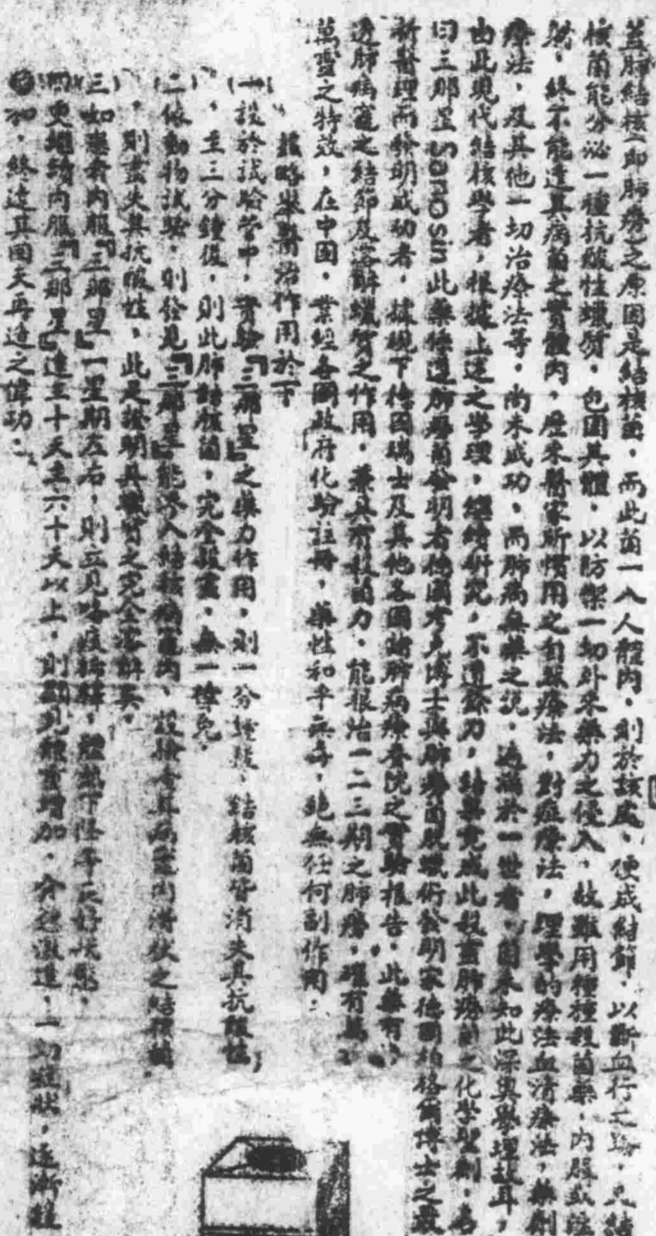 蓋肺結核(即肺癆)之原因是結核菌，而此菌一入人體內，則於該處，便成結節，以斷血行之路，凡結
核菌能分泌一種抗酸性蠟質，包圍其體，以防禦一切外來藥力之侵入，故雖用種種殺菌藥，內服或注
射，終不能達其病菌之實體內，歷來醫家所慣用之刺激療法，對症療法，理學的療法血清療法，無創
療法，及其他一切治療法等，尚未成功，而肺病無藥之説，遍滿於一世者，因未知此深奧學理故耳，
由此現代結核學者，根據上述之學理，繼續研究，不遺餘力，結果完成此殺盡肺癆菌之化學聖劑，名
曰三那星Sanosin此藥係這肺癆菌發明者德國古克博士與肺癆菌脱蠟術發明家德國柏格爾博士之最
新發理而發明成功者，據現下德國瑞士及其他各國諸肺病療養院之實驗報告，此藥有
透肺病竈之結節及溶解蠟質之作用，兼具有殺菌力，能根治一二三期之肺癆，確有
萬靈之特效，在中国，業經各國政府化驗註冊，藥性和平無毒，絶無任何副作用：
茲略舉醫治作用於下
(一)設於試驗管中，實驗『三那星』之藥力作用，則一分鐘後，結核菌皆消失其抗酸性，
至三分鐘後，則此肺結核菌，完全殺盡，無一倖免，
(二)依動物試驗，則發見『三那星』能深入結核病竈內，
，則盡失其抗酸性，此是證明其蠟質之完全溶解矣，
(三)如患者內服『三那星』一星期左右，則立見咯痰稀薄，體熱下降等良好狀態，
(四)更繼續內服『三那星』達三十天至六十天以上，則顯見體重增加，食慾激進，一切症狀，逐漸輕
加，終達其回天再造之偉功：